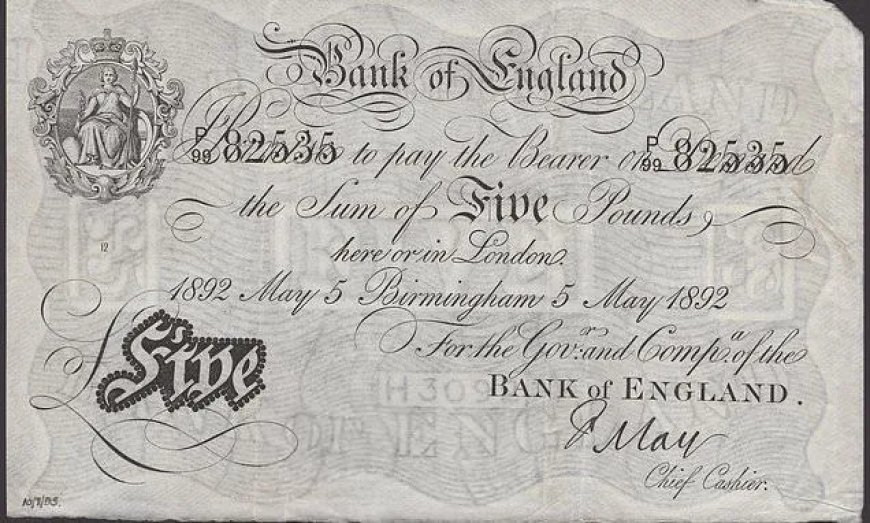 Bank of England
P/99 82535 P/99 82535
I Promise to pay the Bearer on Demand
the Sum of Five Pounds
here or in London.
12
1892 May 5 Birmingham 5 May 1892
For the Govr. and Compa. of the
BANK of ENGLAND.
£Five
H 309
OF ENG
F May
Chief Cashier.